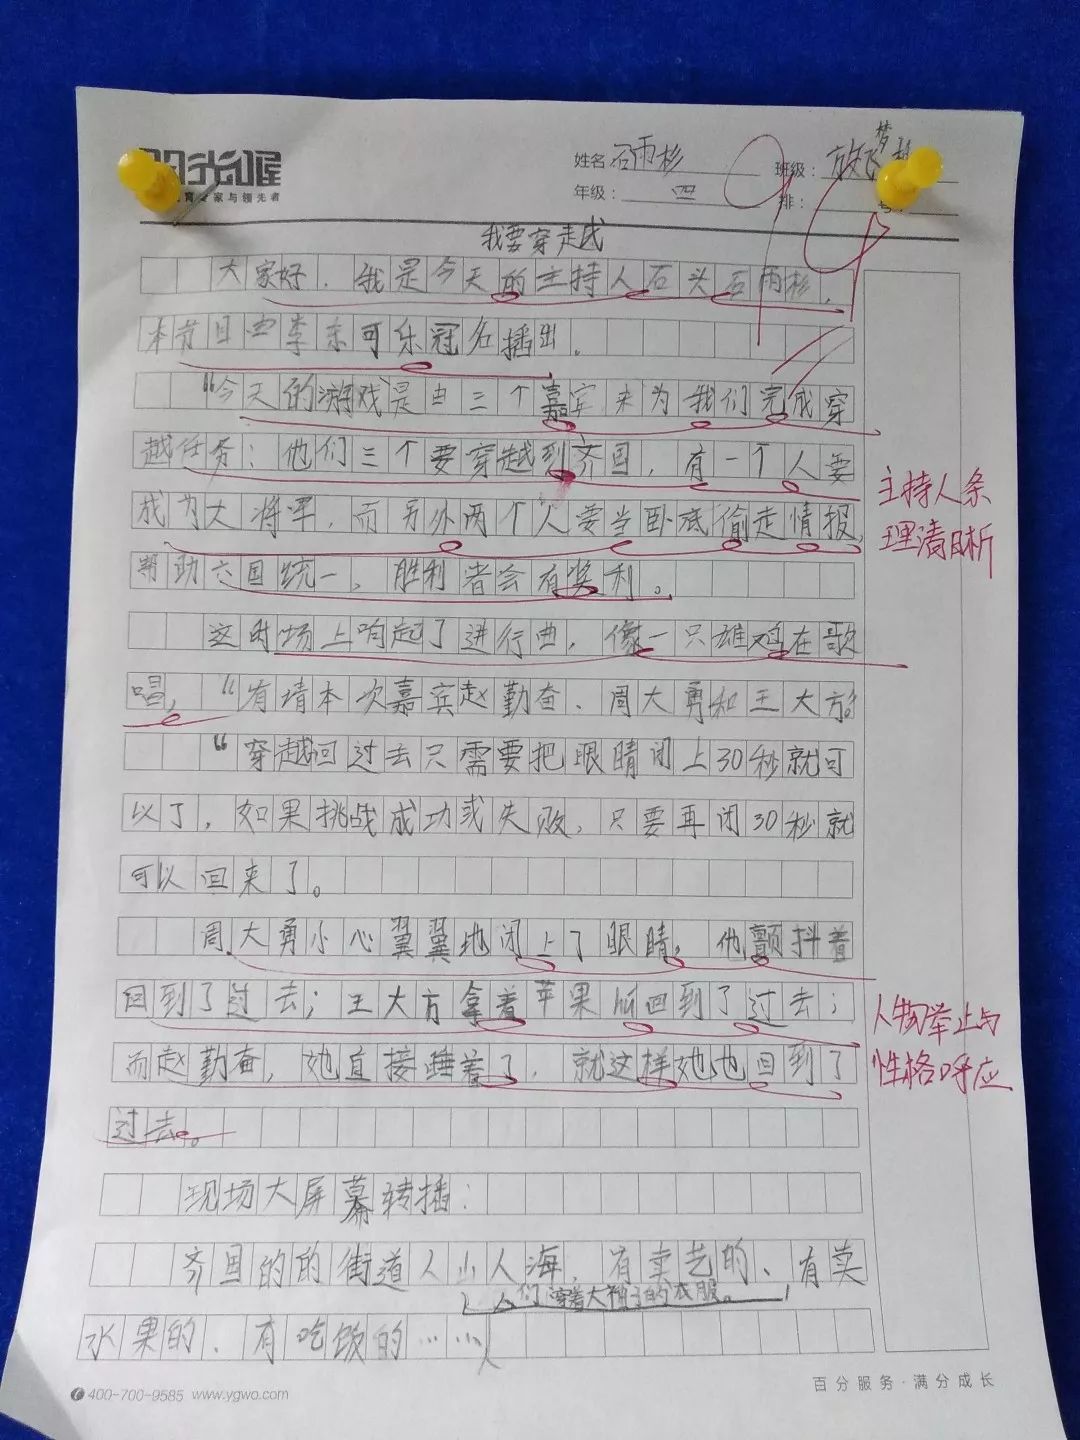 阳光喔
教育专家与领先者
姓名 石雨杉 班级: 放飞梦想
年级: 四 排: 号:
99
我要穿越
大家好，我是今天的主持人石头石雨杉，
本节目由李东可乐冠名播出。
“今天的游戏是由三个嘉宾来为我们完成穿
越任务：他们三个要穿越到齐国，有一个人要
成为大将军，而另外两个人要当卧底偷走情报，
帮助六国统一，胜利者会有奖利。
这时场上响起了进行曲，像一只雄鸡在歌
唱，“有请本次嘉宾赵勤奋、周大勇和王大方
“穿越回过去只需要把眼睛闭上30秒就可
以了，如果挑战成功或失败，只要再闭30秒就
可以回来了。
周大勇小心翼翼地闭上了眼睛，他颤抖着
回到了过去；王大方拿着苹果回到了过去；
而赵勤奋，她直接睡着了，就这样她也回到了
过去。
现场大屏幕转播：
齐国的的街道人山人海，有卖艺的、有卖
人们穿着大袖子的衣服。
水果的、有吃饭的……
主持人条
理清晰
人物举止与
性格呼应
400-700-9585 www.ygwo.com
百分服务·满分成长